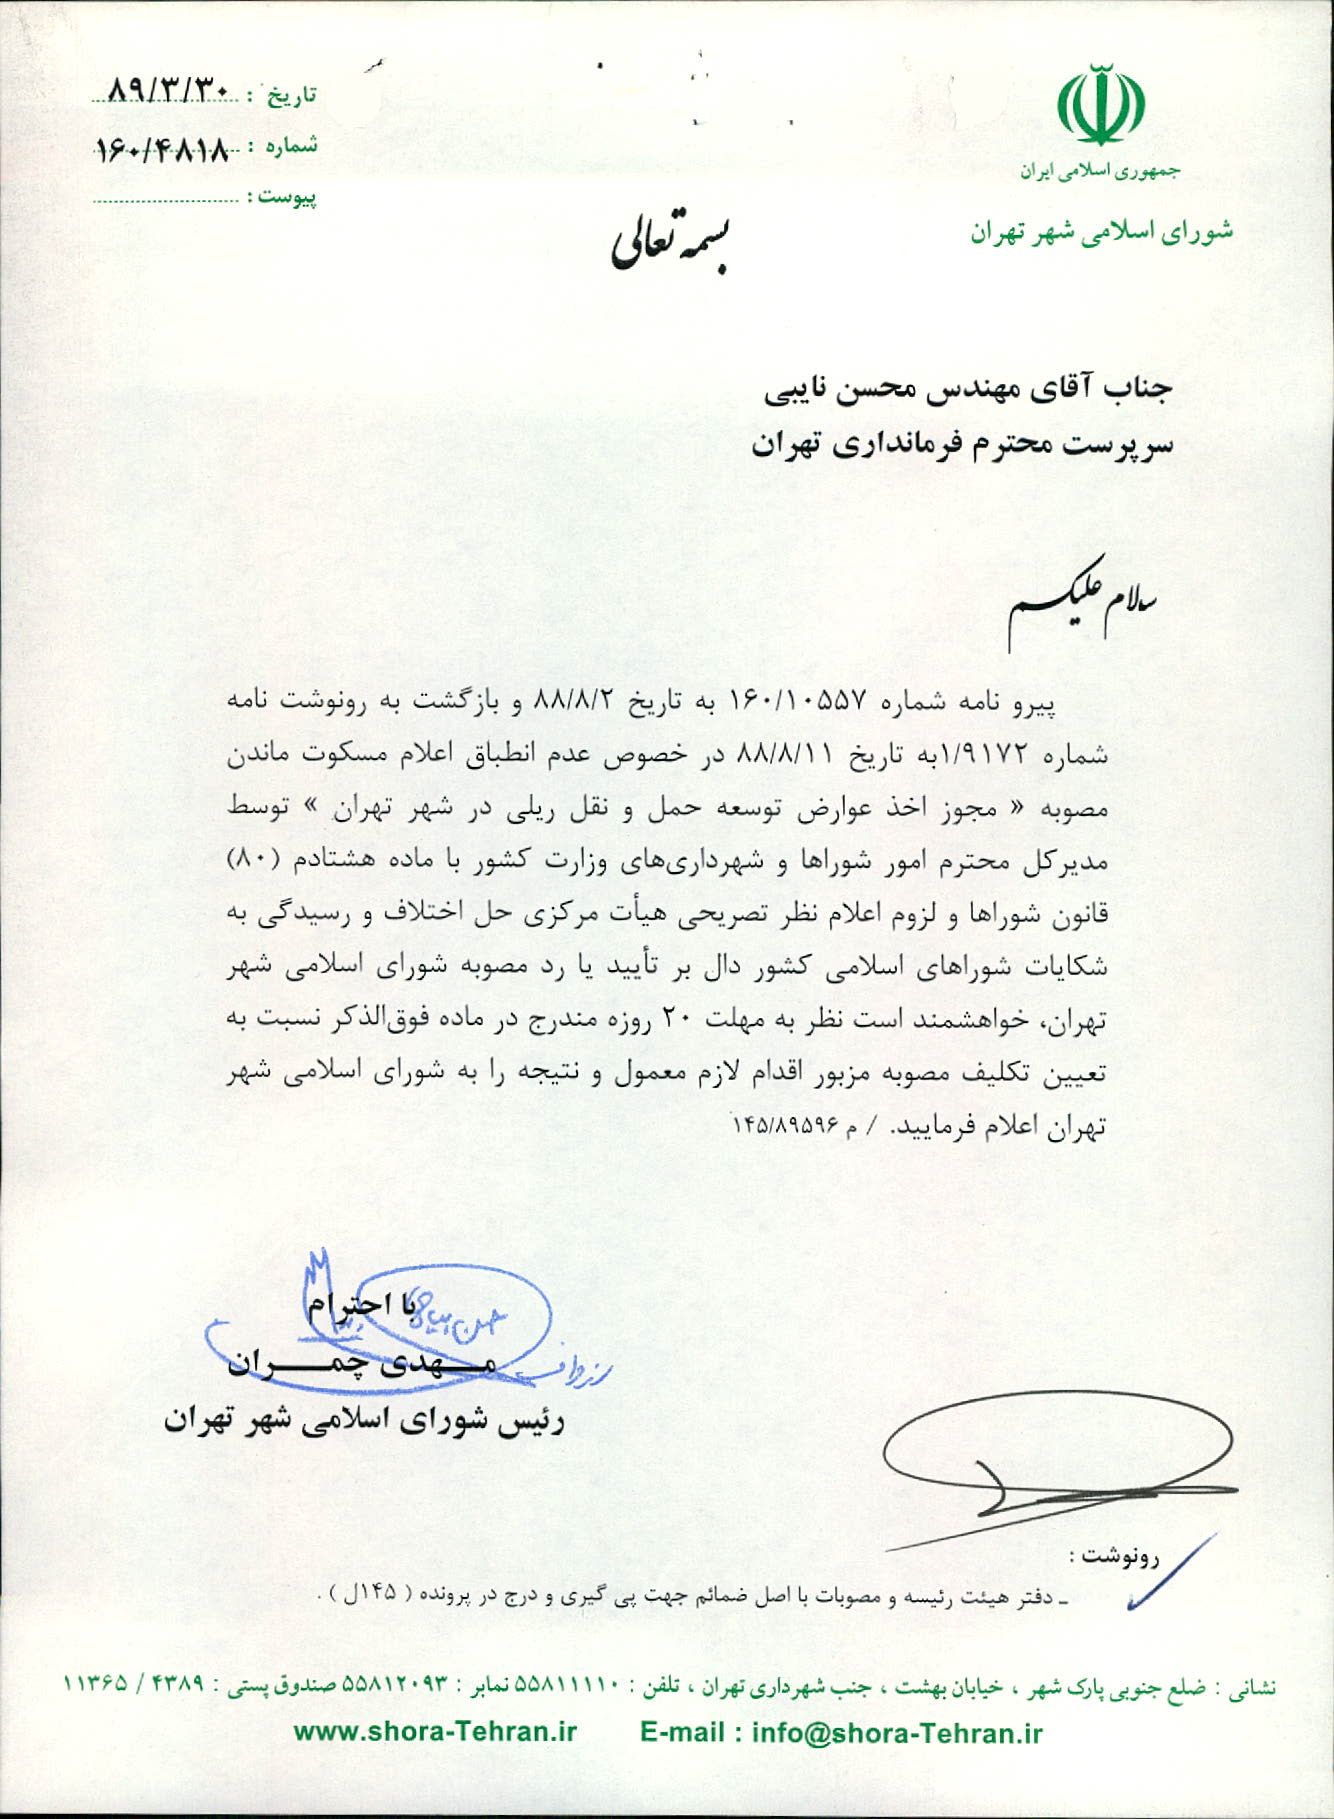 جمهوری اسلامی ایران
شورای اسلامی شهر تهران
تاریخ : ۸۹/۳/۳۰
شماره : ۱۶۰/۴۸۱۸
پیوست :
بسمه تعالی
جناب آقای مهندس محسن نایبی
سرپرست محترم فرمانداری تهران
سلام علیکم
پیرو نامه شماره ۱۶۰/۱۰۵۵۷ به تاریخ ۸۸/۸/۲ و بازگشت به رونوشت نامه
شماره ۱/۹۱۷۲به تاریخ ۸۸/۸/۱۱ در خصوص عدم انطباق اعلام مسکوت ماندن
مصوبه « مجوز اخذ عوارض توسعه حمل و نقل ریلی در شهر تهران » توسط
مدیرکل محترم امور شوراها و شهرداری‌های وزارت کشور با ماده هشتادم (۸۰)
قانون شوراها و لزوم اعلام نظر تصریحی هیأت مرکزی حل اختلاف و رسیدگی به
شکایات شوراهای اسلامی کشور دال بر تأیید یا رد مصوبه شورای اسلامی شهر
تهران، خواهشمند است نظر به مهلت ۲۰ روزه مندرج در ماده فوق‌الذکر نسبت به
تعیین تکلیف مصوبه مزبور اقدام لازم معمول و نتیجه را به شورای اسلامی شهر
تهران اعلام فرمایید. / م ۱۴۵/۸۹۵۹۶
با احترام
مـهدی چمـران
رئیس شورای اسلامی شهر تهران
رونوشت :
ـ دفتر هیئت رئیسه و مصوبات با اصل ضمائم جهت پی گیری و درج در پرونده ( ۱۴۵ل ) .
نشانی : ضلع جنوبی پارک شهر ، خیابان بهشت ، جنب شهرداری تهران ، تلفن : ۵۵۸۱۱۱۱۰ نمابر : ۵۵۸۱۲۰۹۳ صندوق پستی : ۴۳۸۹ / ۱۱۳۶۵
www.shora-Tehran.ir E-mail : info@shora-Tehran.ir